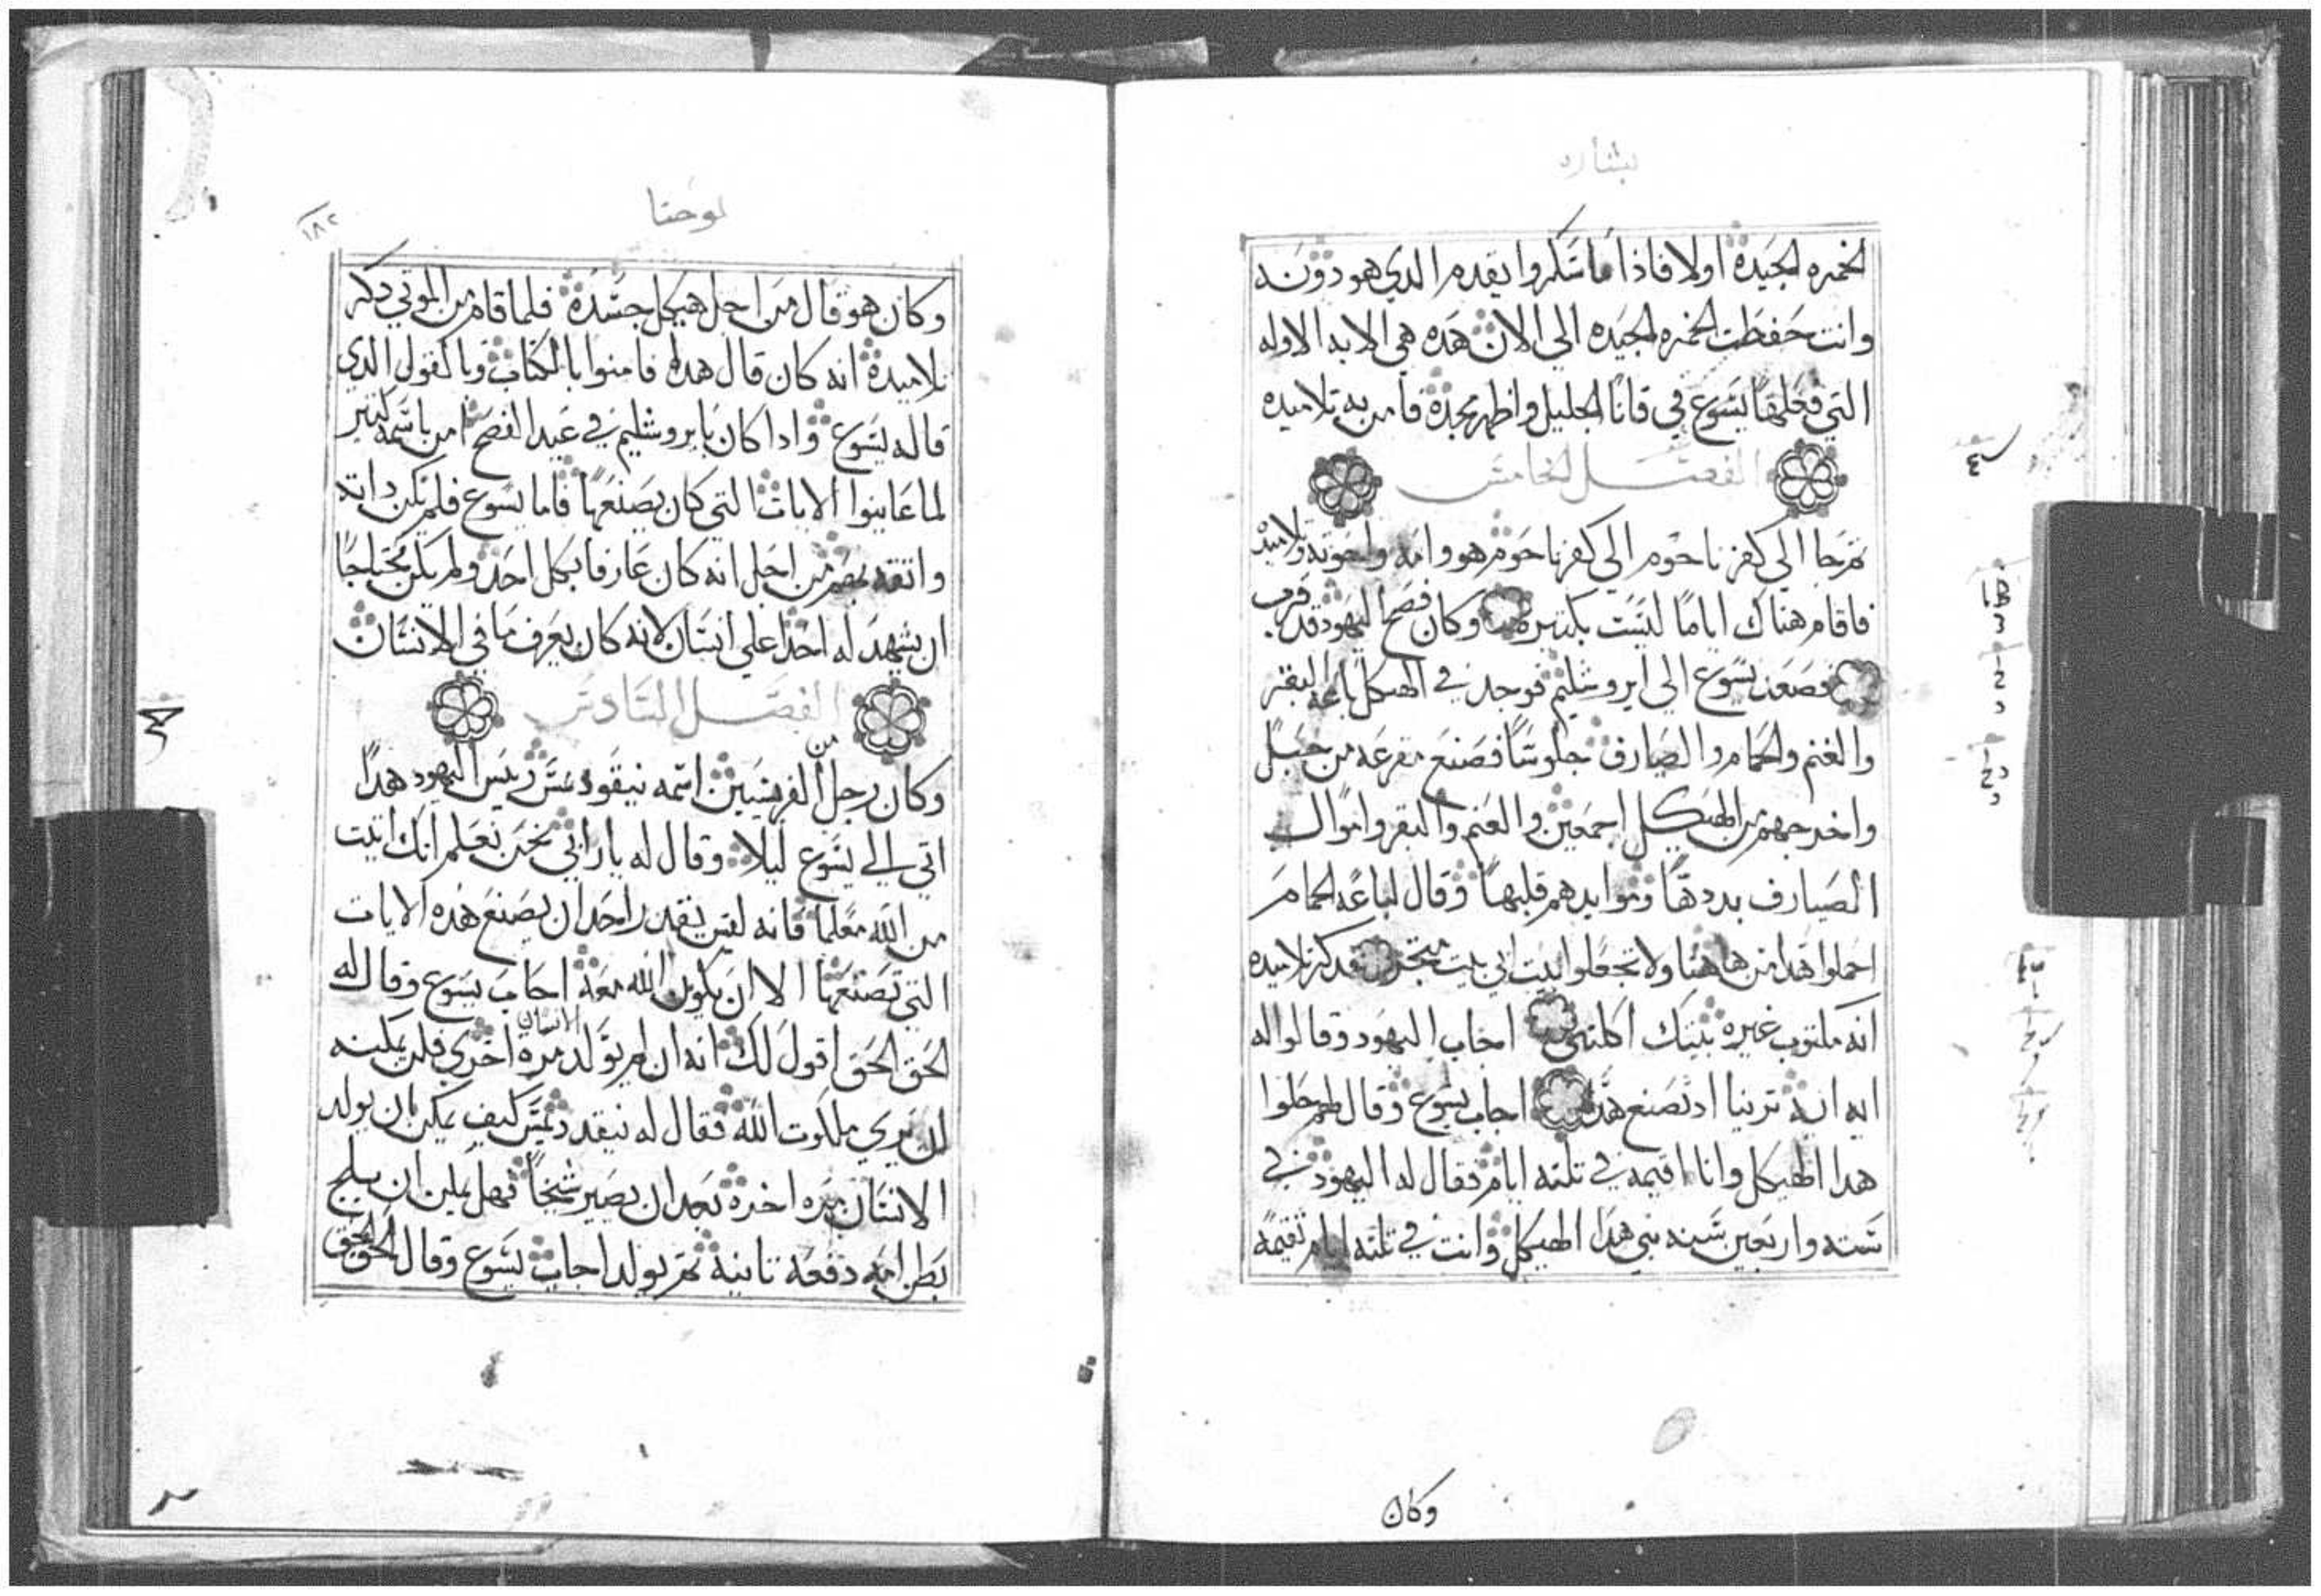 بشاره
الخمره الجيده اولا فاذا ما سكروا يقدم الدي هو دونه
وانت حفظت الخمره الجيده الي الان هده هي الايه الاوله
التي فعلها يسوع في قانا الجليل واظهر مجده فامن به تلاميده
الفصل الخامس
تم جا الي كفرناحوم الي كفرناحوم هو وامه واخوته وتلاميده
فاقام هناك اياما ليست بكتيره وكان فصح اليهود قد قرب
فصعد يسوع الي ايروشليم فوجد في الهيكل باعة البقر
والغنم والحمام والصيارف جلوسا فصنع مقرعه من حبل
واخرجهم من الهيكل اجمعين والغنم والبقر واموال
الصيارف بددها وموايدهم قلبها وقال لباعه الحمام
احملوا هدا من هاهنا ولا تجعلوا بيت ابي بيت متجر فدكر تلاميده
انه مكتوب غيرة بيتك اكلتني اجاب اليهود وقالوا له
ايه ايه ترينا اد تصنع هدا اجاب يسوع وقال لهم حلوا
هدا الهيكل وانا اقيمه في تلته ايام فقال له اليهود في
سته واربعين سنه بني هدا الهيكل وانت في تلته ايام تقيمه
وكان
يوحنا
١٨٢
وكان هو قال من اجل هيكل جسده فلما قام من الموتي دكر
تلاميده انه كان قال هدا فامنوا بالكتاب وبالقول الدي
قاله يسوع وادا كان بايروشليم في عيد الفصح امن باسمه كتير
لما عاينوا الايات التي كان يصنعها فاما يسوع فلم يكن داته
واتقه بهم من اجل انه كان عارفا بكل احد ولم يكن محتاجا
ان يشهد له احدا علي انسان لانه كان يعرف ما في الانسان
الفصل السادس
وكان رجل من الفريسيين اسمه نيقودمس رييس اليهود هدا
اتي الي يسوع ليلا وقال له يا رابي نحن نعلم انك اتيت
من الله معلما فانه ليس يقدر احد ان يصنع هده الايات
التي تصنعها الا ان يكون الله معه اجاب يسوع وقال له
الحق الحق اقول لك انه ان لم يولد الانسان مرة اخري فلن يمكنه
ان يري ملكوت الله فقال له نيقدديمس كيف يمكن بان يولد
الانسان مره اخره بعد ان يصير شيخا فهل يمكن ان يلج
بطن امه دفعه تانيه تم يولد اجاب يسوع وقال الحق الحق